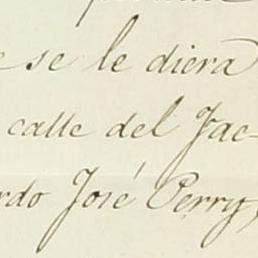 e se le diera
calle del Jac-
rdo José Perry,